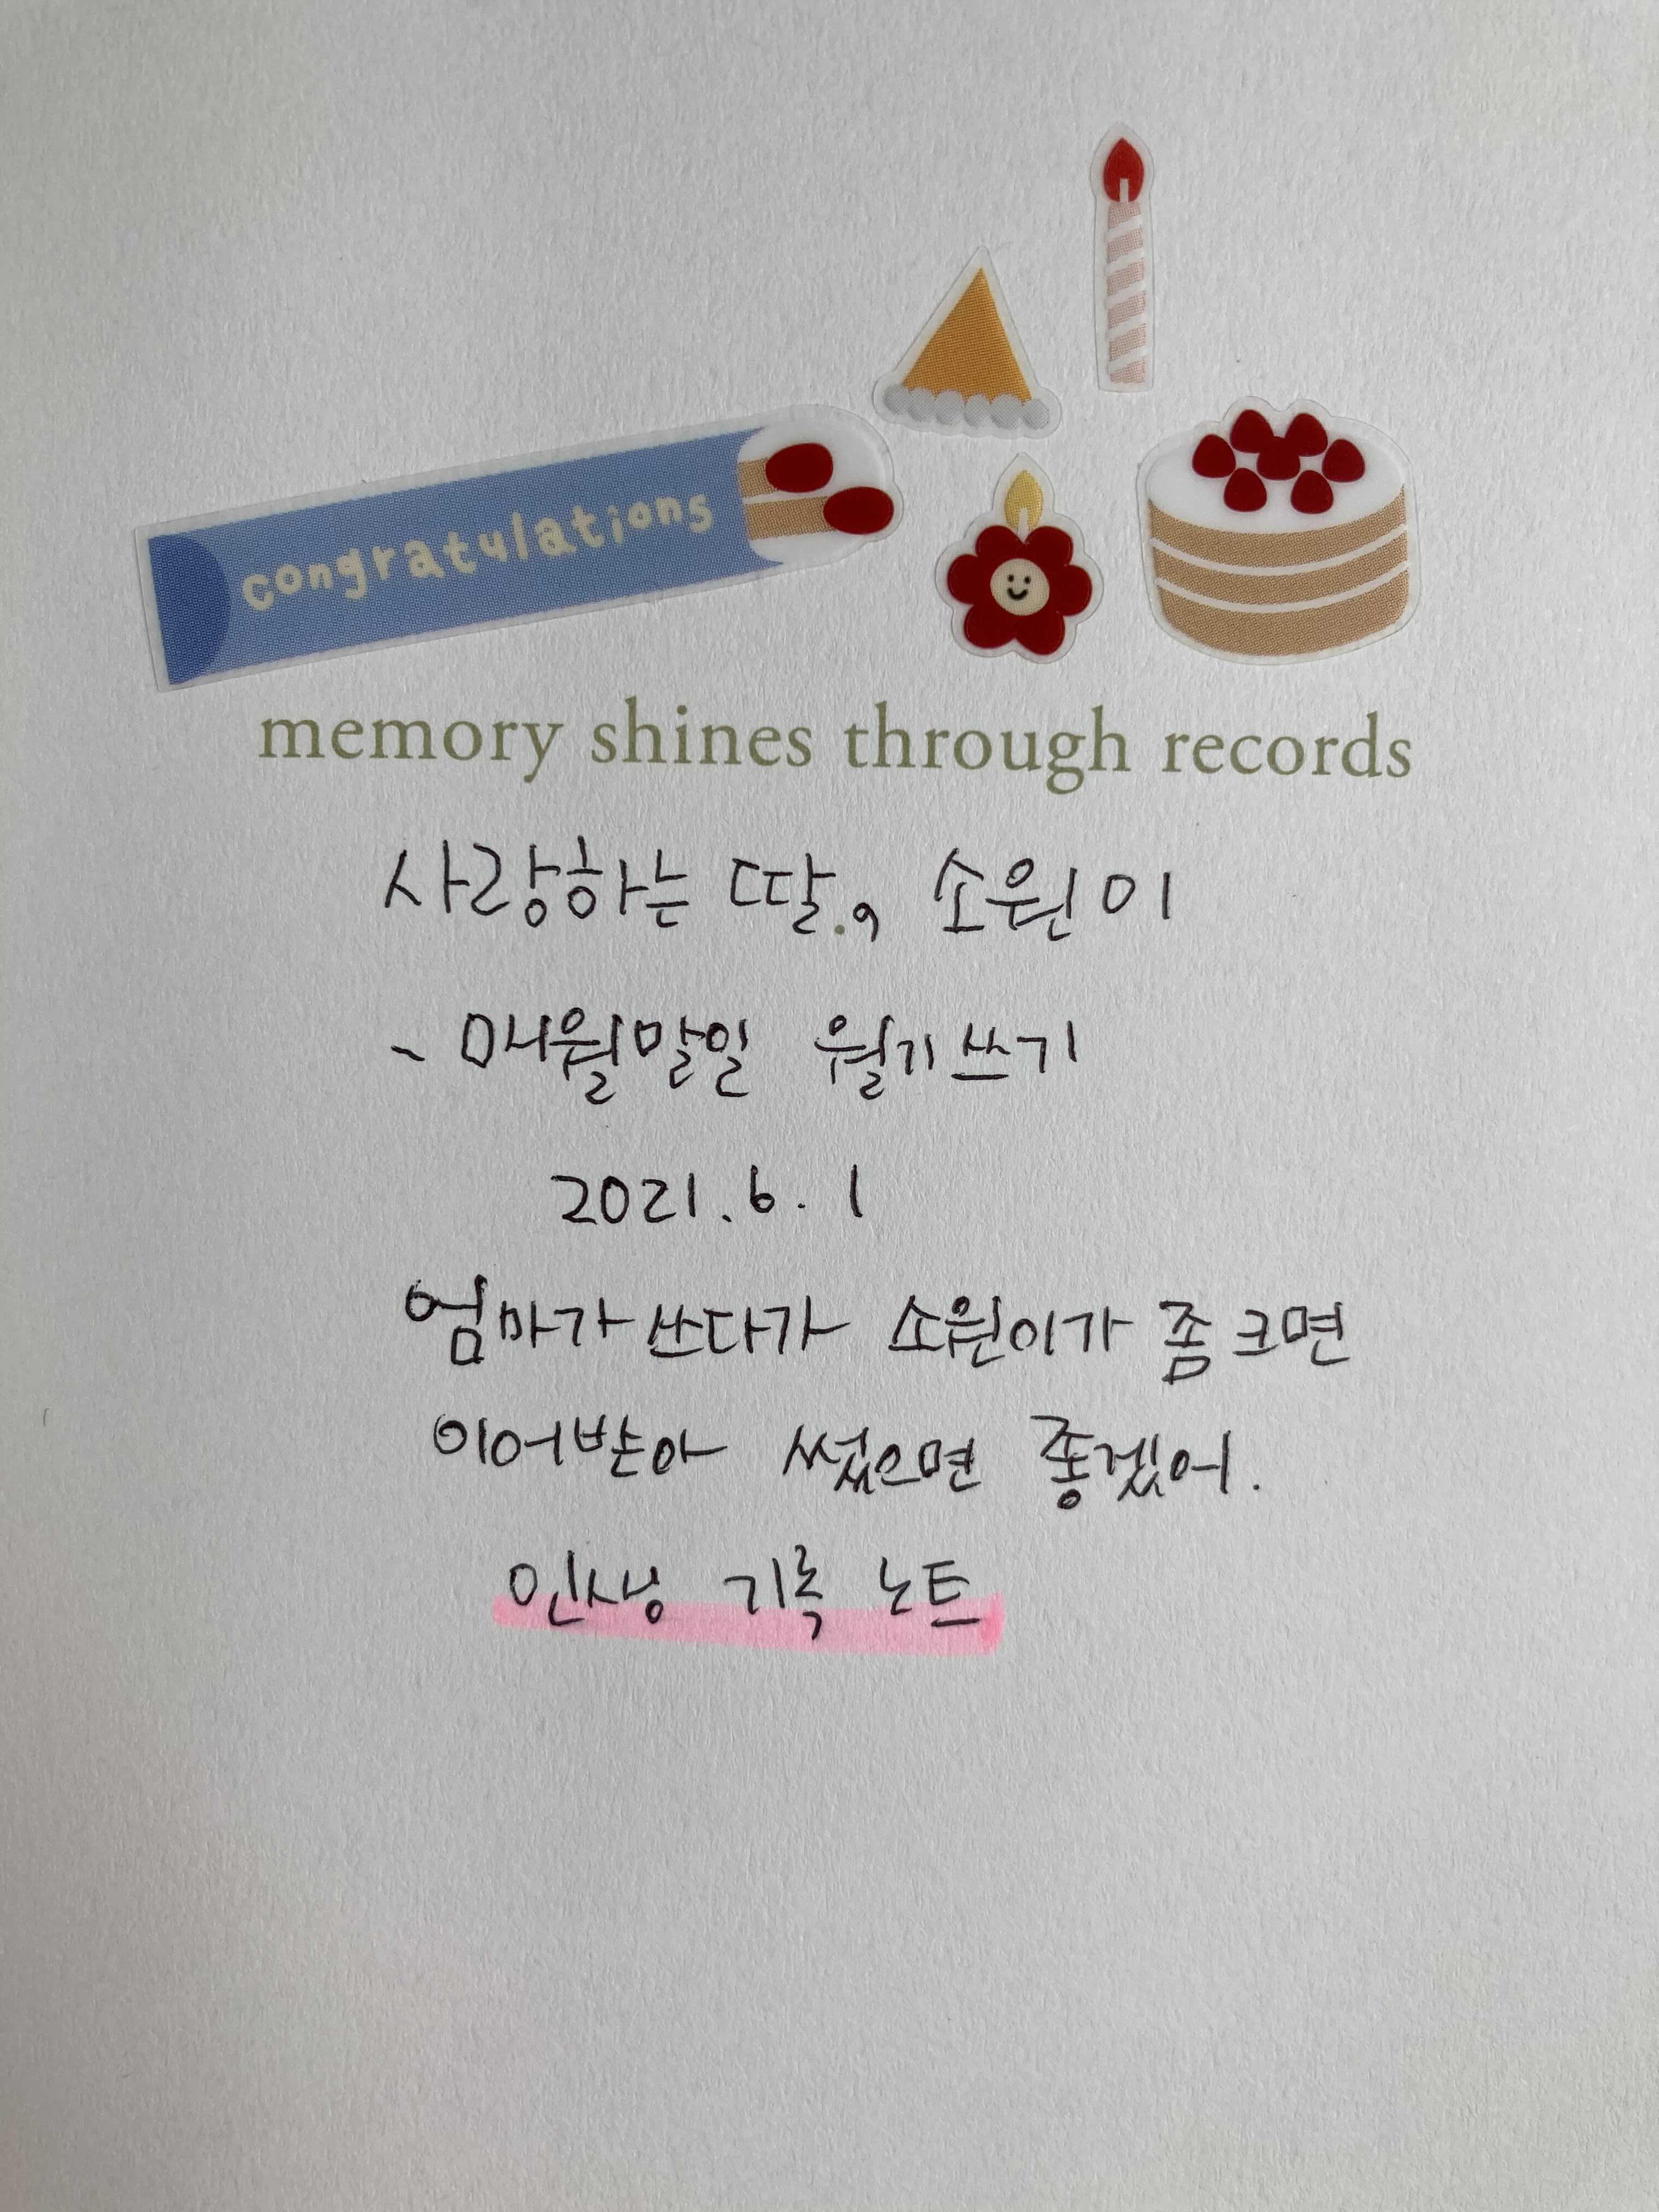 congratulations
memory shines through records
사랑하는 딸., 소원이
- 매월말일 월기쓰기
2021.6.1
엄마가 쓰다가 소원이가 좀 크면
이어받아 썼으면 좋겠어.
인생 기록 노트